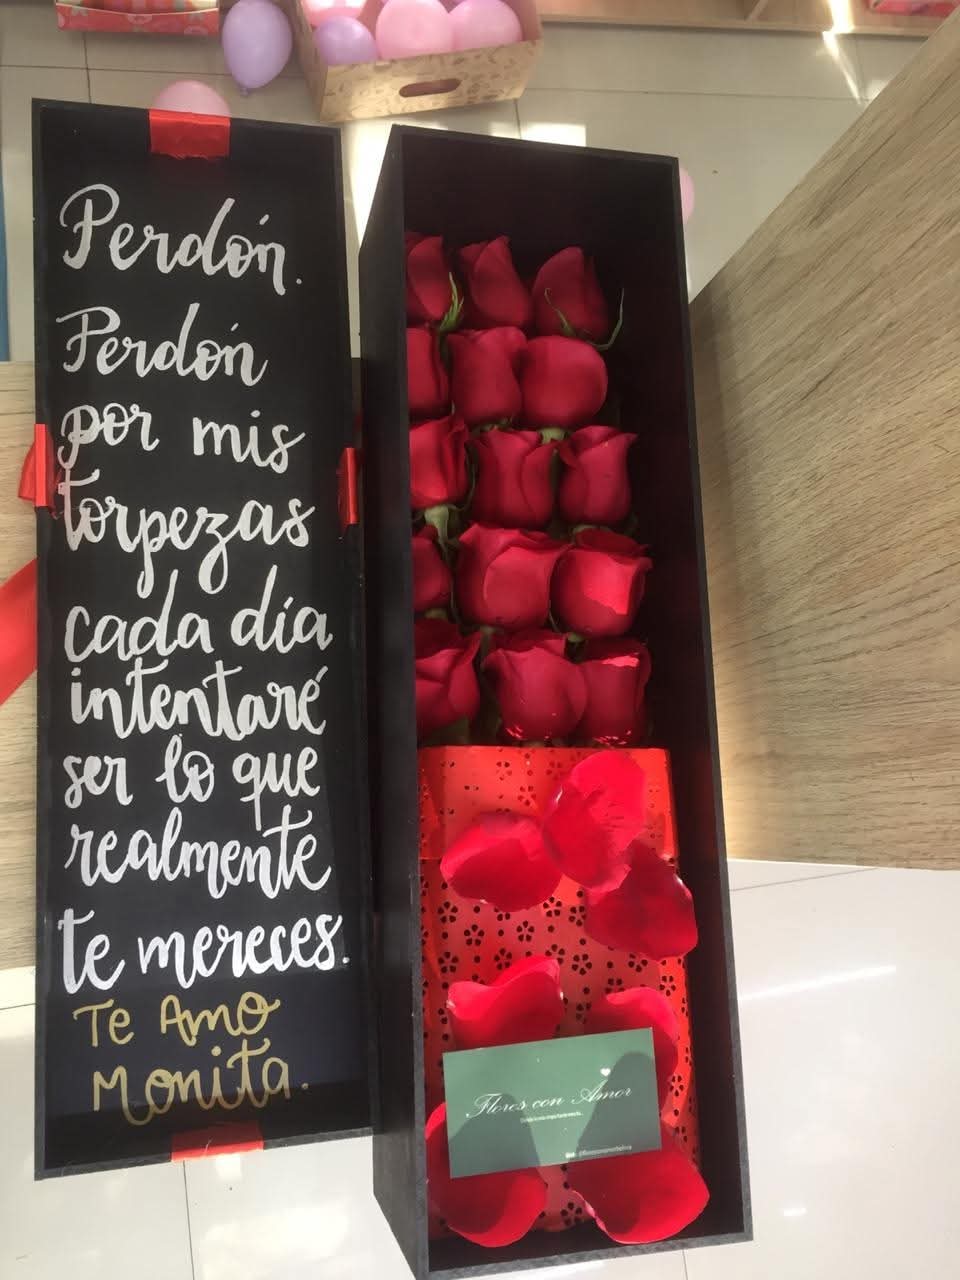 Perdón.
Perdón
por mis
torpezas
cada día
intentaré
ser lo que
realmente
te mereces.
Te Amo
Monita.
Flores con Amor